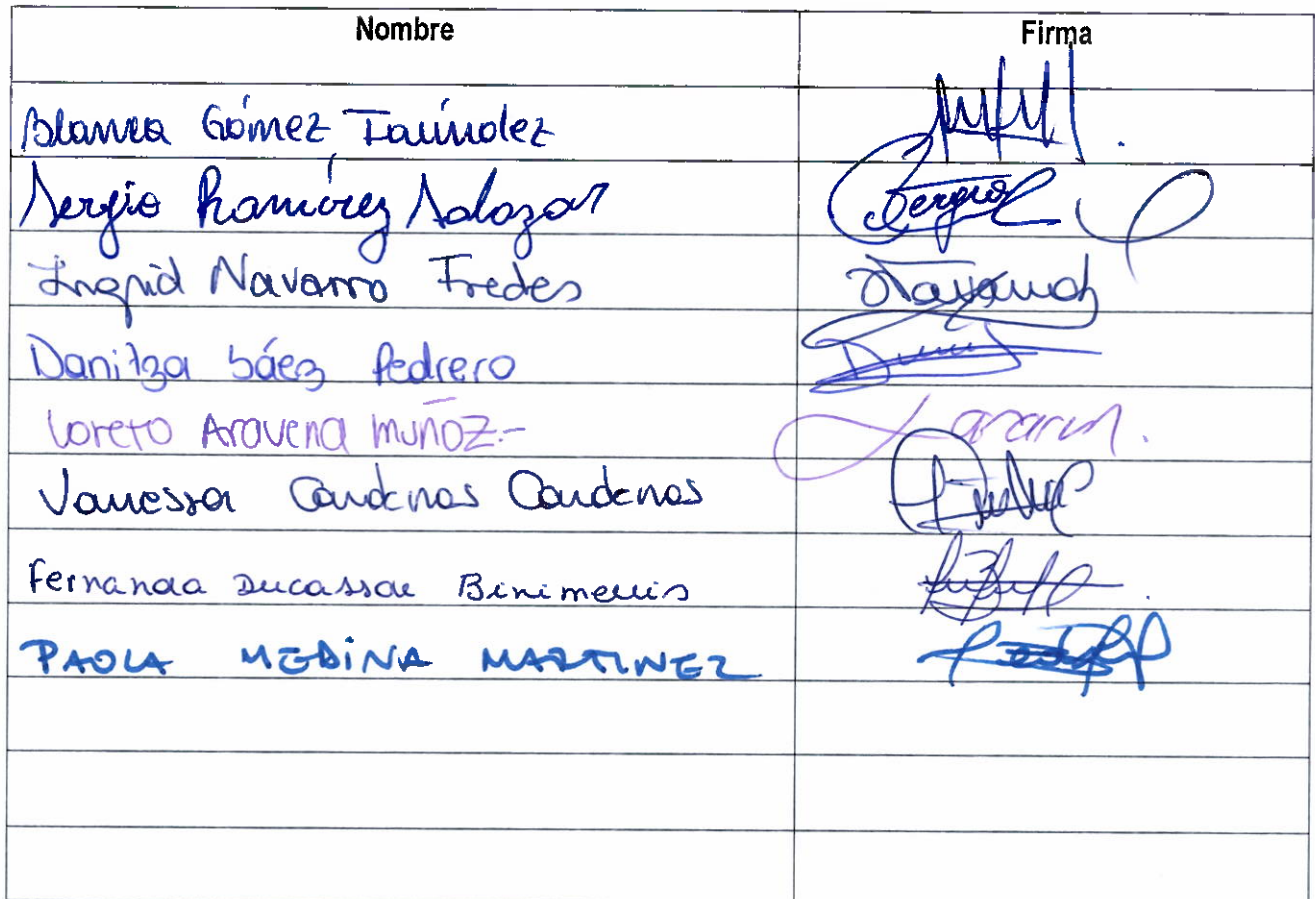 Nombre Firma
Blanca Gómez Faúndez
Sergio Ramírez Salazar Sergio
Ingrid Navarro Fredes
Danitza Sáez Pedrero
Loreto Aravena Muñoz.-
Vanessa Cardenas Cardenas
Fernanda Ducassou Binimelis
PAOLA MEDINA MARTINEZ